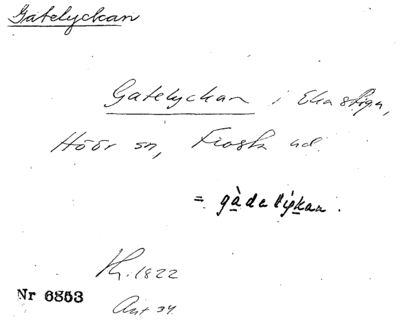 Gatelyckan
Gatelyckan i Ekastiga,
Höör sn, Frosta hd.
= gàdelýkan.
1822
Nr 6853
Ant 34.